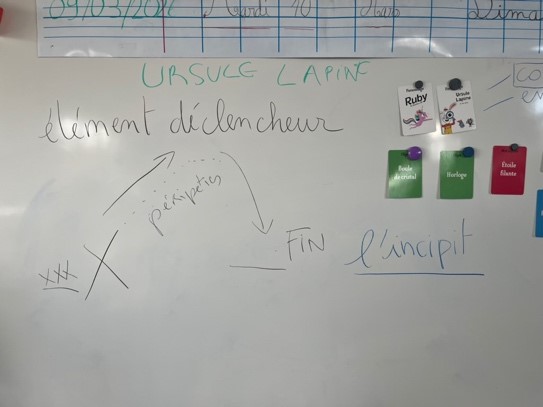 Mardi 10
URSULE LAPINE
élément déclencheur
péripéties
xxx
FIN
l'incipit
Ruby
Ursule
Lapine
Boule
de cristal
Horloge
Étoile
filante